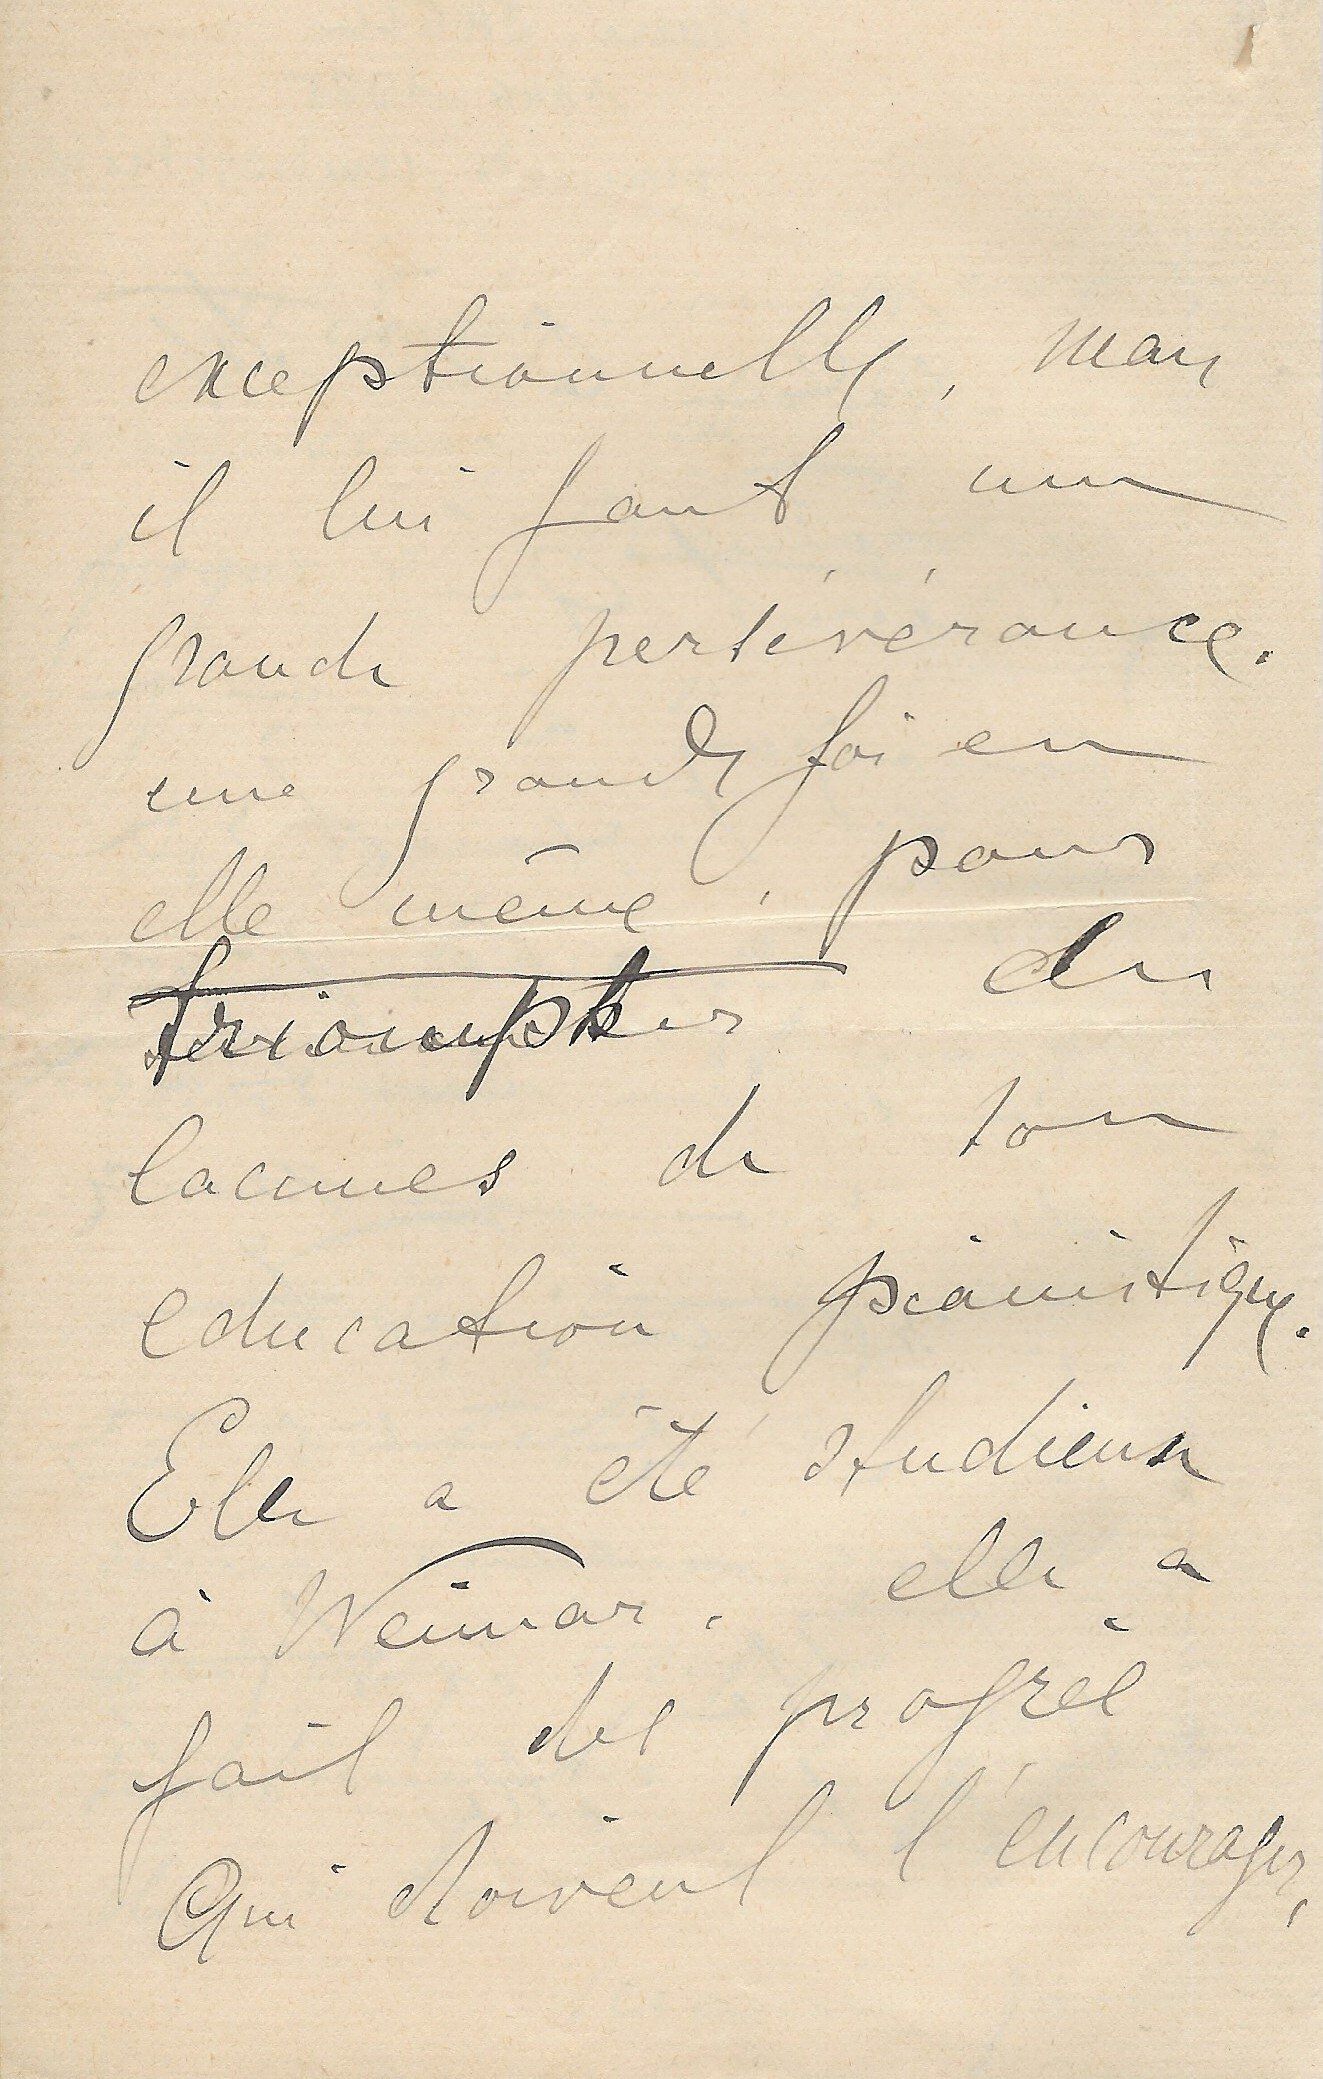 exceptionnelle, mais
il lui faut une
grande persévérance.
une grande foi en
elle même, pour
triompher des
lacunes de son
education pianistique.
Elle a été studieuse
à Weimar, elle a
fait des progrès
qui doivent l'encourager,